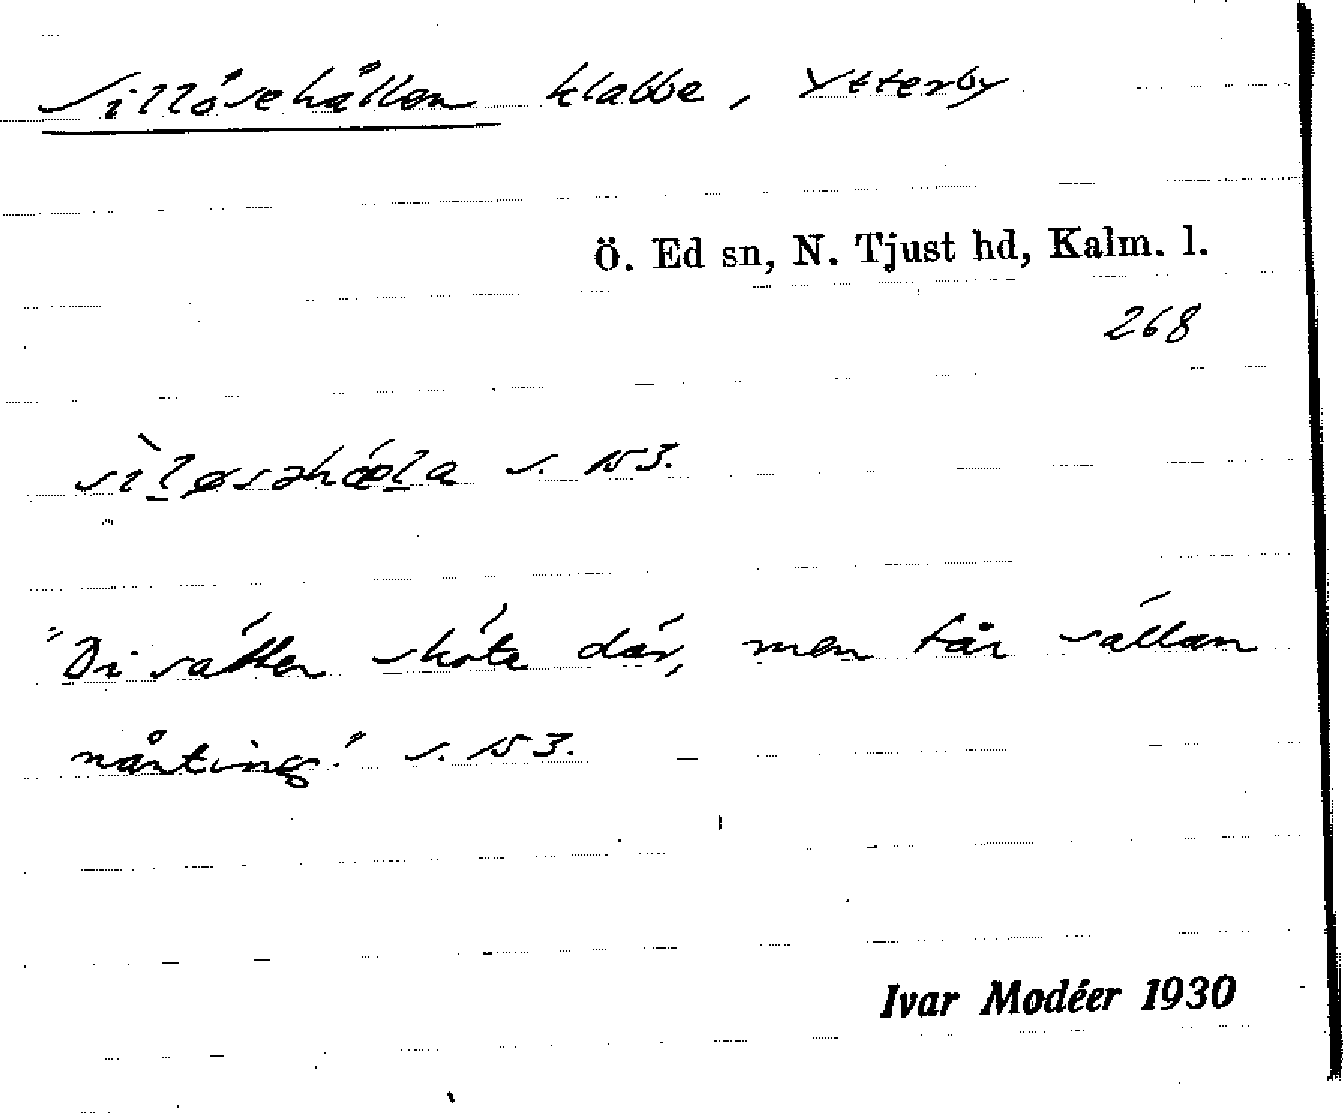 Sillösehällen klabbe, Ytterby
Ö. Ed sn, N. Tjust hd, Kalm. l.
268
s. 153.
"Di sätter sköta där, men får sällan
nånting." s. 153.
Ivar Modéer 1930